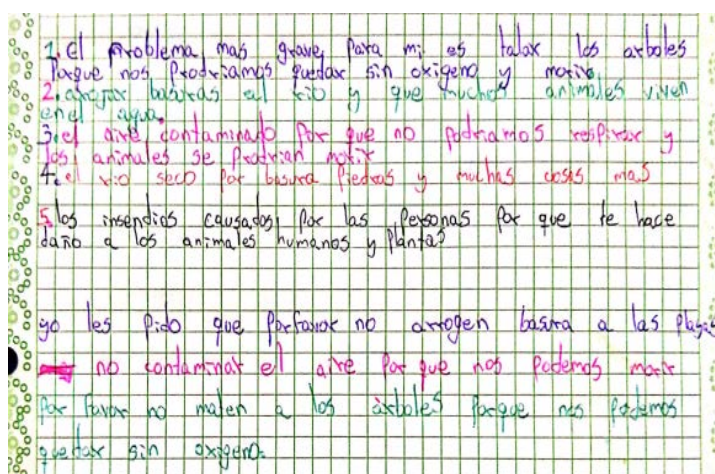 1. El problema mas grave para mi es talar los arboles
Porque nos Prodriamos quedar sin oxigeno y morir
2. arrojar basuras al rio y que muchos animales viven
en el agua.
3. el aire contaminado Por que no podriamos respirar y
los animales se Prodrian morir
4. el rio seco por basura Piedras y muchas cosas mas
5. los insendios causados Por las Personas Por que le hace
daño a los animales humanos y Plantas
yo les Pido que Porfavor no arrogen basura a las Playas
no contaminar el aire Por que nos Podemos morir
Por favor no maten a los árboles Porque nos Podemos
quedar sin oxigeno.